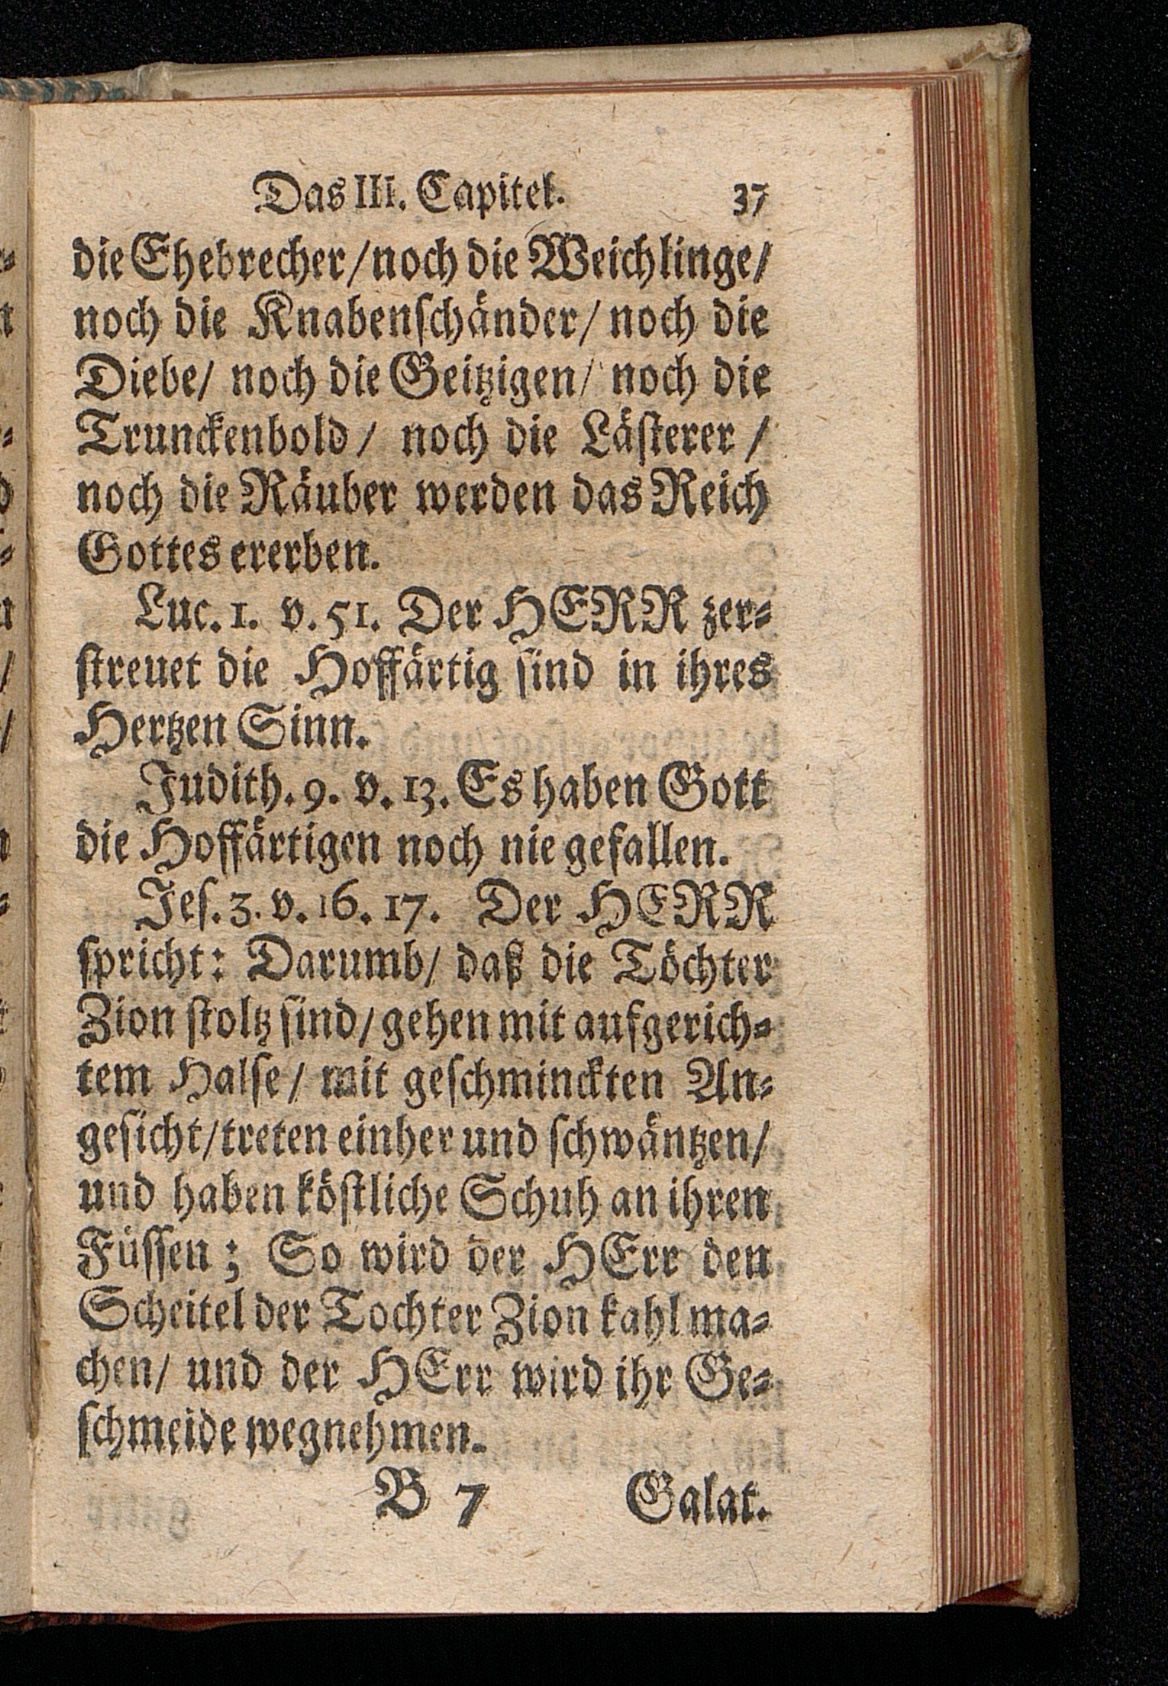 Das III. Capitel. 37
die Ehebrecher/ noch die Weichlinge/
noch die Knabenschänder/ noch die
Diebe/ noch die Geitzigen/ noch die
Trunckenbold/ noch die Lästerer/
noch die Räuber werden das Reich
Gottes ererben.
Luc. 1. v. 51. Der HERR zer-
streuet die Hoffärtig sind in ihres
Hertzen Sinn.
Judith. 9. v. 13. Es haben Gott
die Hoffärtigen noch nie gefallen.
Jes. 3. v. 16. 17. Der HERR
spricht: Darumb/ daß die Töchter
Zion stoltz sind/ gehen mit aufgerich-
tem Halse/ mit geschminckten An-
gesicht/ treten einher und schwäntzen/
und haben köstliche Schuh an ihren
Füssen; So wird der HErr den
Scheitel der Tochter Zion kahl ma-
chen/ und der HErr wird ihr Ge-
schmeide wegnehmen.
B 7 Galat.